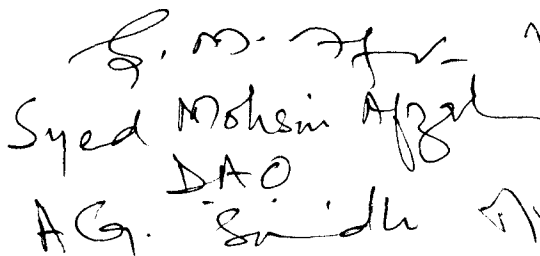 S. M. Afz
Syed Mohsin Afzal
DAO
AG. Sindh